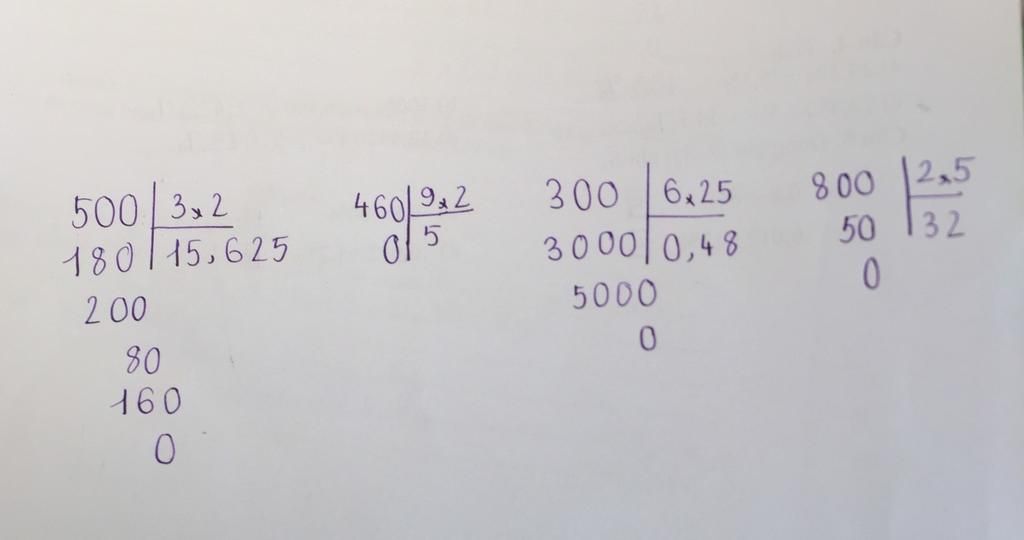 500 3,2
180 15,625
200
80
160
0
460 9,2
0 5
300 6,25
3000 0,48
5000
0
800 2,5
50 32
0